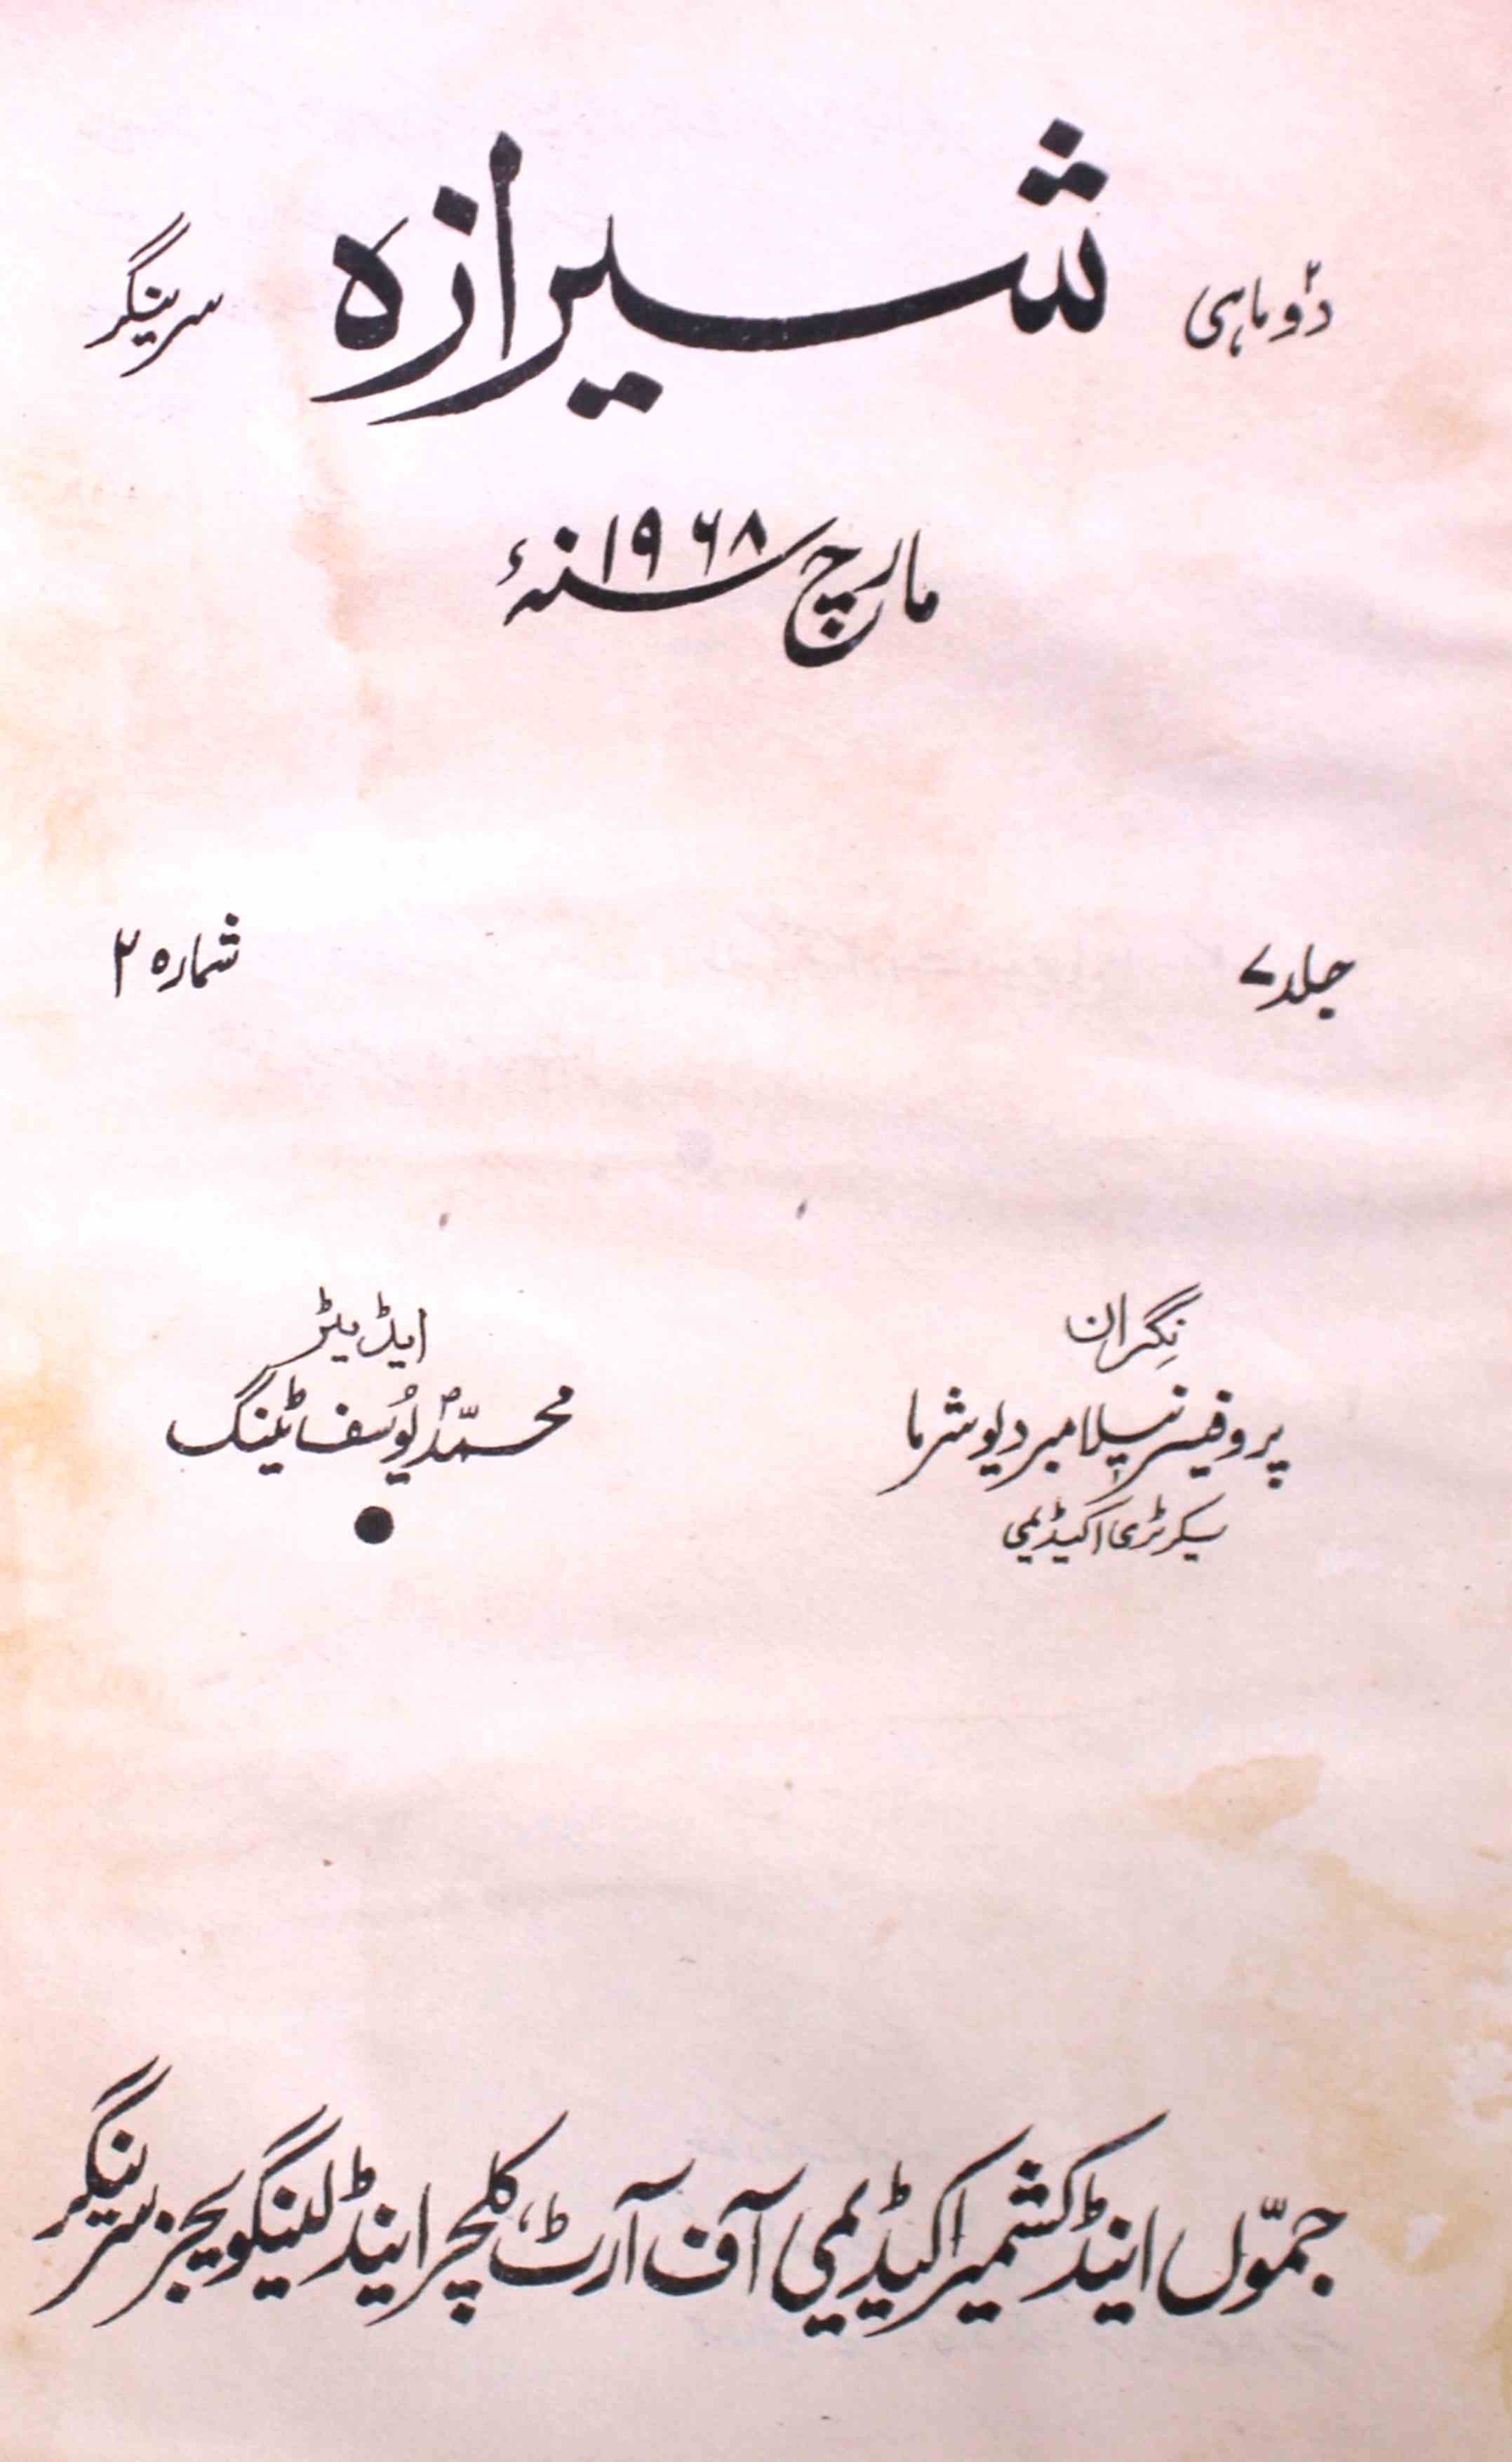 دو ماہی شیرازہ سرینگر
مارچ ۱۹۶۸ سنہء
جلد ۷ شمارہ ۲
نگران
پروفیسر نیلامبر دیو شرما
سیکرٹری اکیڈیمی
ایڈیٹر
محمدؐ یوسف ٹینگ
جموں اینڈ کشمیر اکیڈیمی آف آرٹ، کلچر اینڈ لینگویجز سرینگر